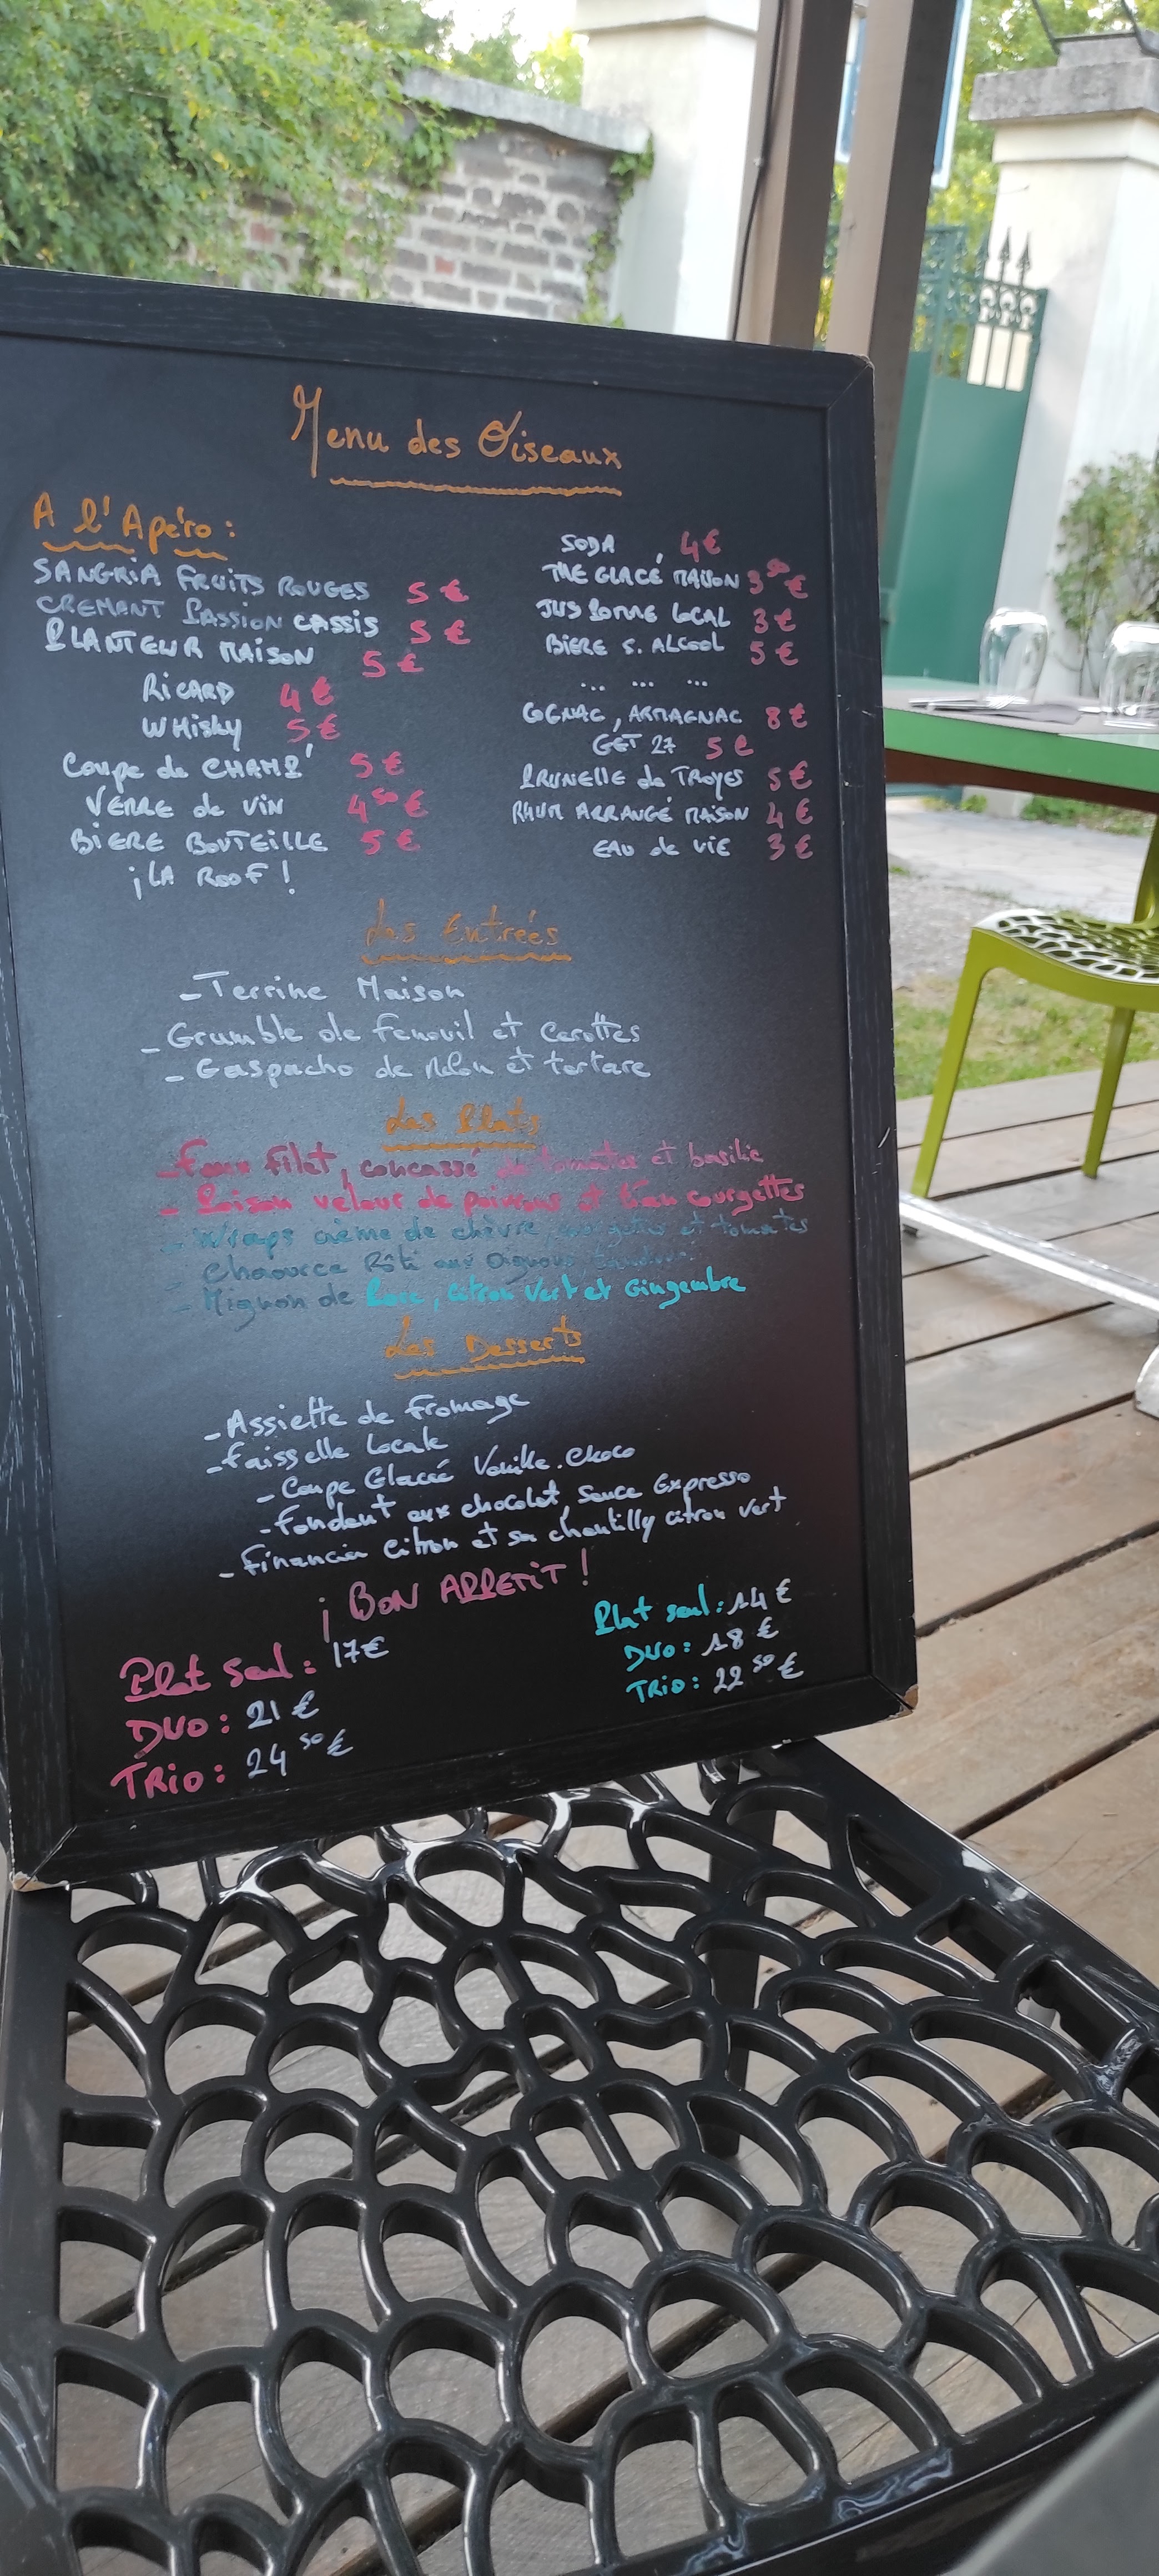 Menu des Oiseaux
A l'Apéro :
SANGRIA FRUITS ROUGES 5 €
CREMANT PASSION CASSIS 5 €
PLANTEUR MAISON 5 €
RICARD 4 €
WHISKY 5 €
Coupe de CHAMP' 5 €
VERRE de VIN 4 50 €
BIERE BOUTEILLE 5 €
¡LA ROOF !
SODA 4 €
THE GLACÉ MAISON 3 50 €
JUS POMME LOCAL 3 €
BIERE S. ALCOOL 5 €
... ... ...
COGNAC, ARMAGNAC 8 €
GET 27 5 €
PRUNELLE de TROYES 5 €
RHUM ARRANGÉ MAISON 4 €
EAU de VIE 3 €
Les Entrées
- Terrine Maison
- Grumble de Fenouil et Carottes
- Gaspacho de Melon et tartare
Les Plats
- Faux filet, concassé de tomates et basilic
- Poisson velour de poivrons et tian courgettes
- Wraps crème de chèvre, courgettes et tomates
- Chaource Rôti aux Oignons
- Mignon de Porc, citron Vert et Gingembre
Les Desserts
- Assiette de fromage
- Faisselle Locale
- Coupe Glacée Vanille. Choco
- Fondant aux chocolat, Sauce Expresso
- Financier Citron et sa chantilly citron vert
¡ BON APPETIT !
Plat seul : 17 €
DUO : 21 €
TRIO : 24 50 €
Plat seul : 14 €
DUO : 18 €
TRIO : 22 50 €